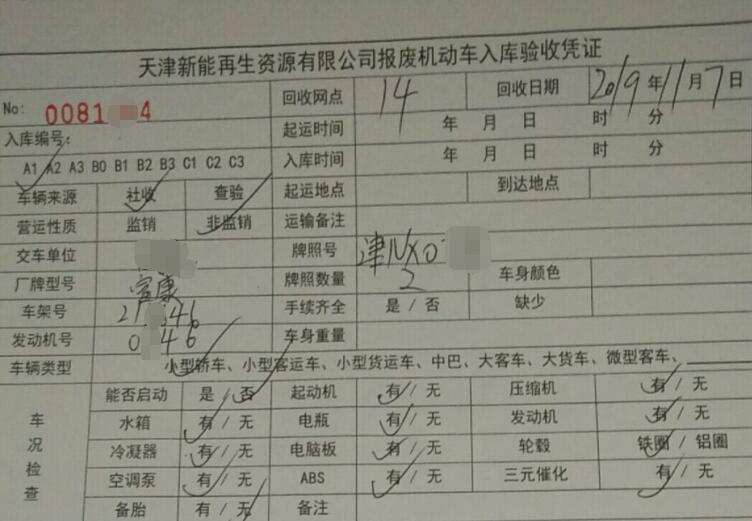 天津新能再生资源有限公司报废机动车入库验收凭证
No: 0081 4 回收网点 14 回收日期 2019年11月7日
入库编号: 起运时间 年 月 日 时 分
A1 A2 A3 B0 B1 B2 B3 C1 C2 C3 入库时间 年 月 日 时 分
车辆来源 社收 查验 起运地点 到达地点
营运性质 监销 非监销 运输备注
交车单位 牌照号 津NX0
厂牌型号 富康 牌照数量 2 车身颜色
车架号 2 346 手续齐全 是 / 否 缺少
发动机号 0 46 车身重量
车辆类型 小型轿车、小型客运车、小型货运车、中巴、大客车、大货车、微型客车、
车况检查
能否启动 是 / 否 起动机 有 / 无 压缩机 有 / 无
水箱 有 / 无 电瓶 有 / 无 发动机 有 / 无
冷凝器 有 / 无 电脑板 有 / 无 轮毂 铁圈 / 铝圈
空调泵 有 / 无 ABS 有 / 无 三元催化 有 / 无
备胎 有 / 无 备注